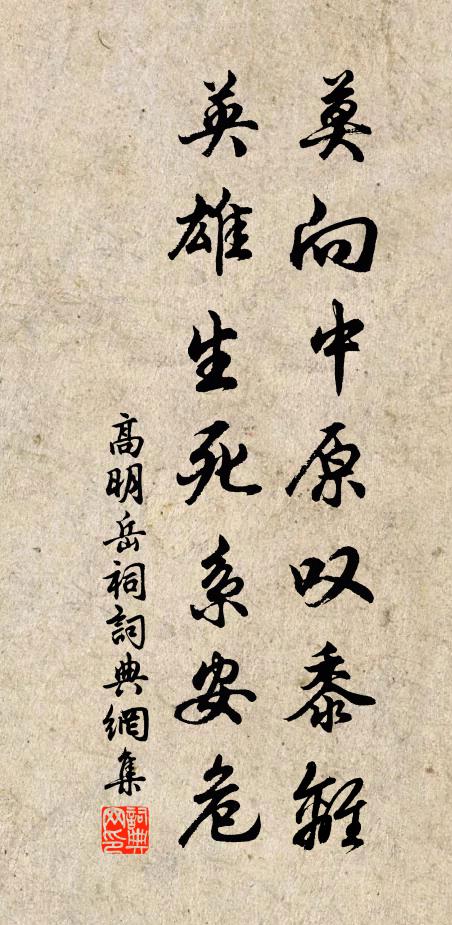 莫向中原叹黍離
英雄生死系安危
高明岳祠詞典網集
詞典网印